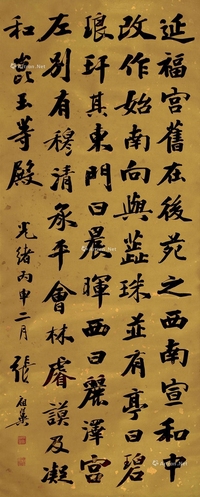 延福宮舊在後苑之西南宣和中
改作始南向與蕋珠並有亭曰碧
琅玕其東門曰晨暉西曰麗澤宮
左別有穆清承平會林睿謨及凝
和崑玉等殿
光緒丙申二月 張祖翼